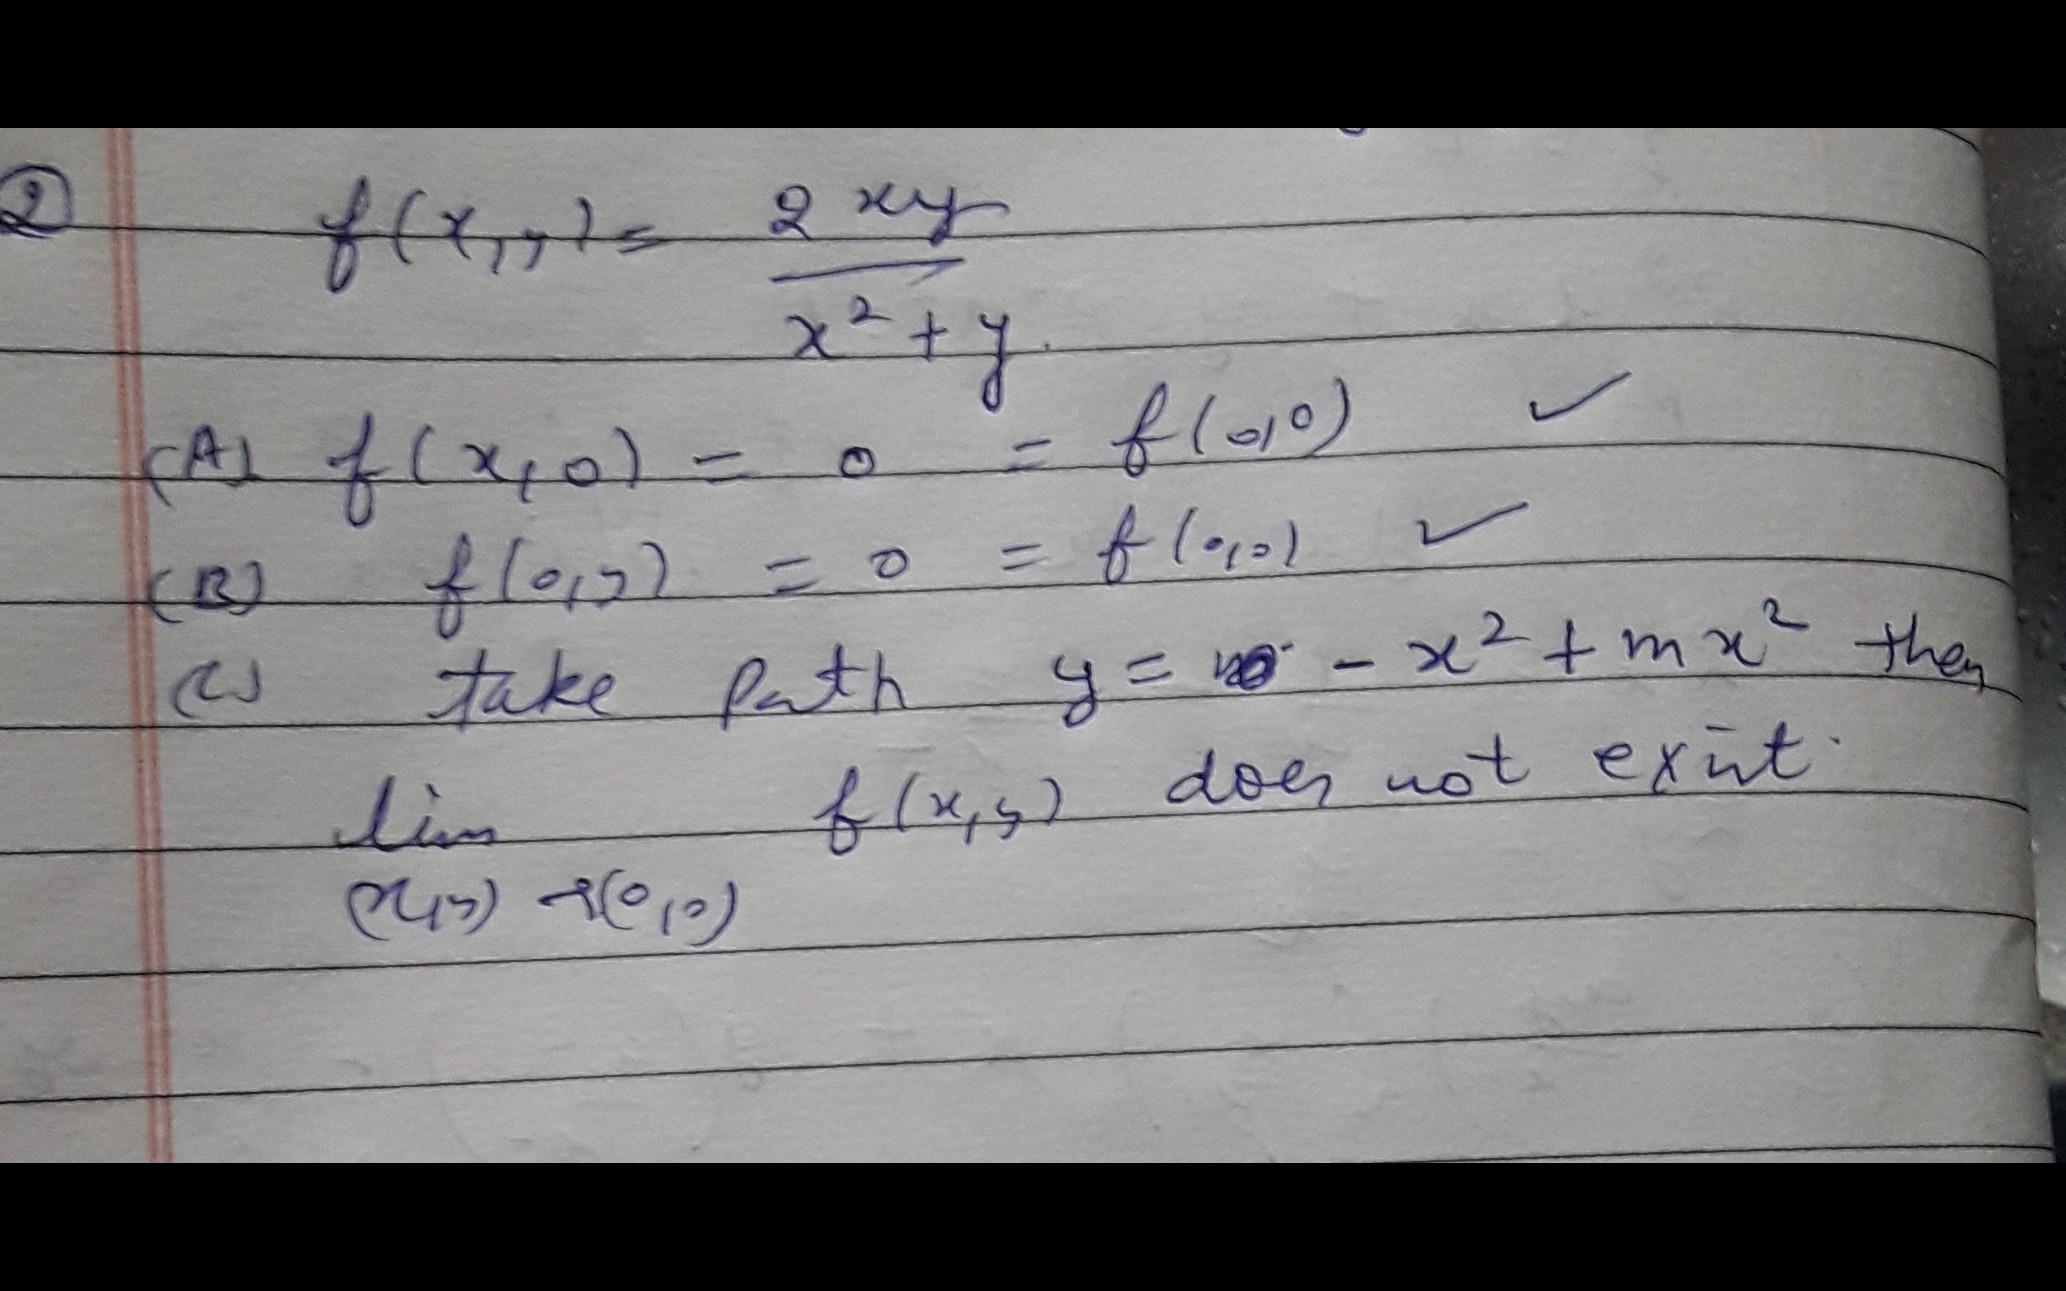 ② f(x,y) = 2xy / x² + y.
(A) f(x,0) = 0 = f(0,0) ✓
(B) f(0,y) = 0 = f(0,0) ✓
(C) take path y = - x² + mx² then
lim f(x,y) does not exist.
(x,y) → (0,0)